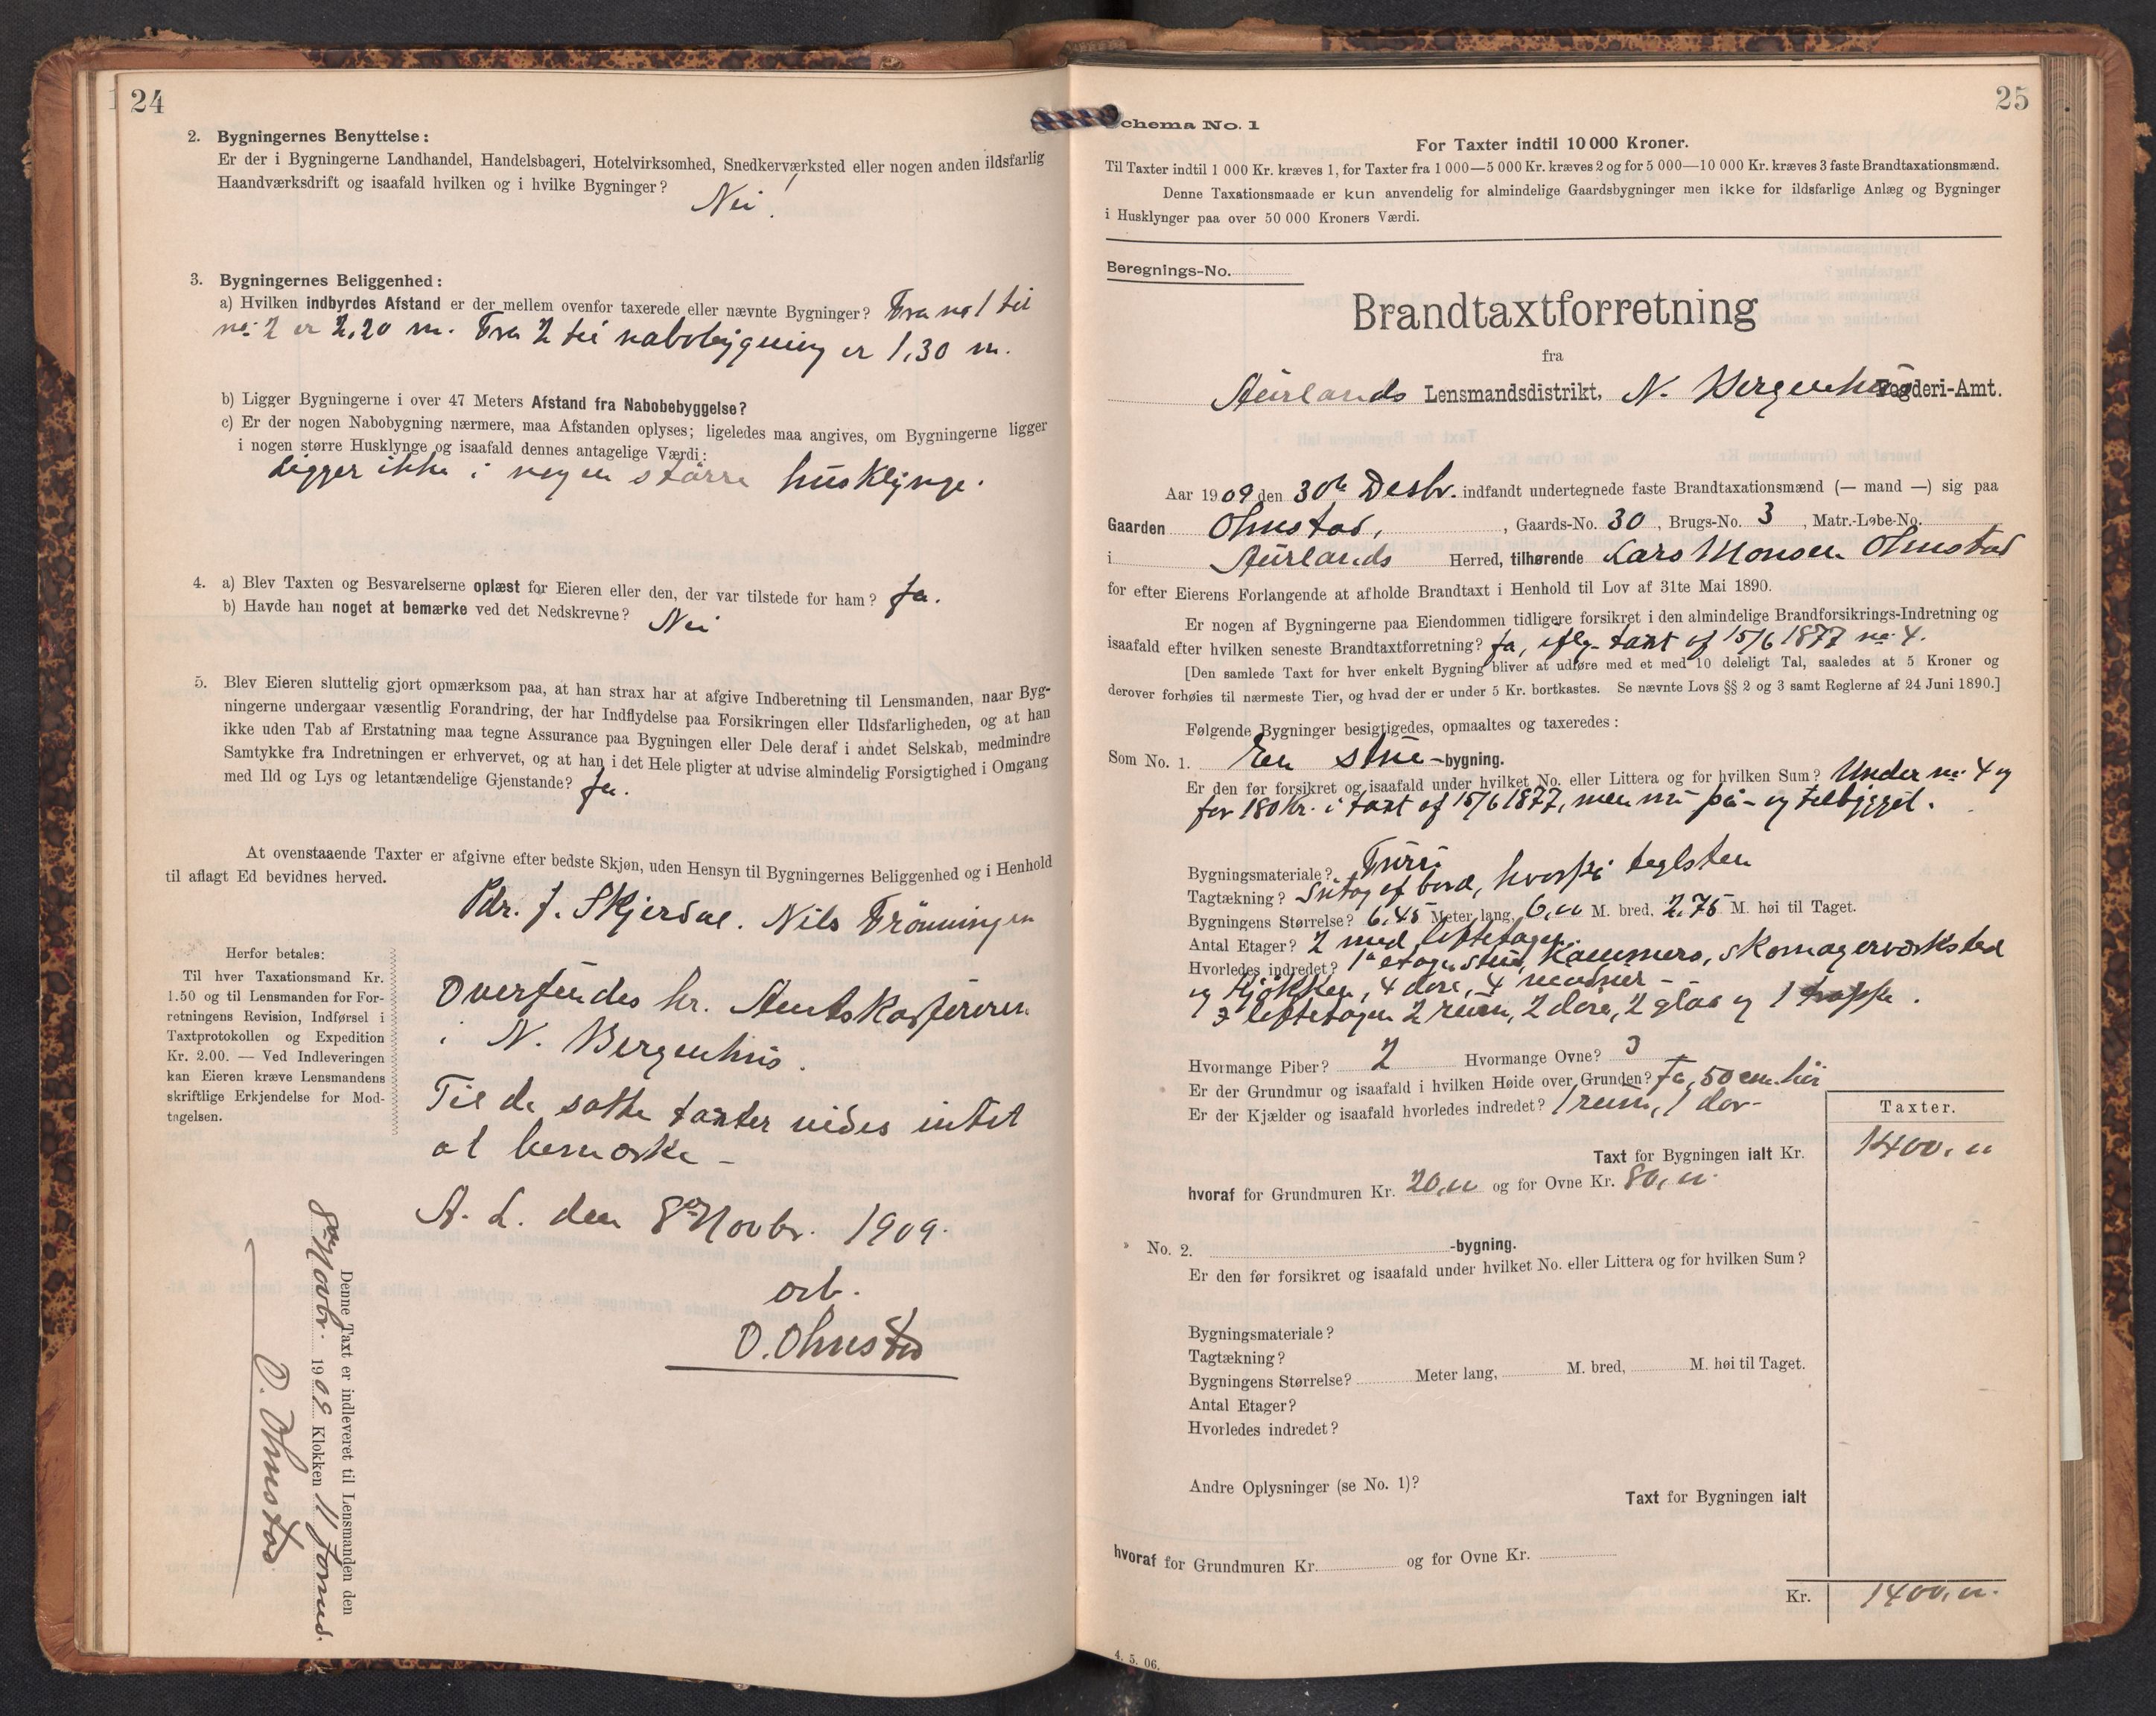 24
2. Bygningernes Benyttelse:
Er der i Bygningerne Landhandel, Handelsbageri, Hotelvirksomhed, Snedkerværksted eller nogen anden ildsfarlig
Haandværksdrift og isaafald hvilken og i hvilke Bygninger?
Nei!
3. Bygningernes Beliggenhed:
a) Hvilken indbyrdes Afstand er der mellem ovenfor taxerede eller nævnte Bygninger? Fra no 1 til
no 2 er 2,20 m. Fra 2 til nabobygning er 1,30 m.
b) Ligger Bygningerne i over 47 Meters Afstand fra Nabobebyggelse?
c) Er der nogen Nabobygning nærmere, maa Afstanden oplyses; ligeledes maa angives, om Bygningerne ligger
i nogen større Husklynge og isaafald dennes antagelige Værdi:
Ligger ikke i nogen större husklynge.
4. a) Blev Taxten og Besvarelserne oplæst for Eieren eller den, der var tilstede for ham? Ja.
b) Havde han noget at bemærke ved det Nedskrevne? Nei
5. Blev Eieren sluttelig gjort opmærksom paa, at han strax har at afgive Indberetning til Lensmanden, naar Byg-
ningerne undergaar væsentlig Forandring, der har Indflydelse paa Forsikringen eller Ildsfarligheden, og at han
ikke uden Tab af Erstatning maa tegne Assurance paa Bygningen eller Dele deraf i andet Selskab, medmindre
Samtykke fra Indretningen er erhvervet, og at han i det Hele pligter at udvise almindelig Forsigtighed i Omgang
med Ild og Lys og letantændelige Gjenstande? Ja.
At ovenstaaende Taxter er afgivne efter bedste Skjøn, uden Hensyn til Bygningernes Beliggenhed og i Henhold
til aflagt Ed bevidnes herved.
Pdr. J. Skjerdal. Nils Frönningen
Herfor betales:
Til hver Taxationsmand Kr.
1.50 og til Lensmanden for For-
retningens Revision, Indførsel i
Taxtprotokollen og Expedition
Kr. 2.00. — Ved Indleveringen
kan Eieren kræve Lensmandens
skriftlige Erkjendelse for Mod-
tagelsen.
Oversendes hr. Amtskasserern
i N. Bergenhus.
Til de satte taxter vides intet
at bemærke –
A. L. den 8de Novbr. 1909.
arb.
O. Ohnstad
Denne Taxt er indleveret til Lensmanden den
8de Novbr. 1909 Klokken 11 formd.
O. Ohnstad
25
chema No. 1
For Taxter indtil 10 000 Kroner.
Til Taxter indtil 1 000 Kr. kræves 1, for Taxter fra 1 000—5 000 Kr. kræves 2 og for 5 000—10 000 Kr. kræves 3 faste Brandtaxationsmænd.
Denne Taxationsmaade er kun anvendelig for almindelige Gaardsbygninger men ikke for ildsfarlige Anlæg og Bygninger
i Husklynger paa over 50 000 Kroners Værdi.
Beregnings-No.
Brandtaxtforretning
fra
Aurlands Lensmandsdistrikt, N. Bergenhus Fogderi-Amt.
Aar 1909 den 30te Desbr. indfandt undertegnede faste Brandtaxationsmænd (— mand —) sig paa
Gaarden Ohnstad, , Gaards-No. 30, Brugs-No. 3, Matr.-Løbe-No.
i Aurlands Herred, tilhørende Lars Monsen Ohnstad
for efter Eierens Forlangende at afholde Brandtaxt i Henhold til Lov af 31te Mai 1890.
Er nogen af Bygningerne paa Eiendommen tidligere forsikret i den almindelige Brandforsikrings-Indretning og
isaafald efter hvilken seneste Brandtaxtforretning? Ja, iflg. taxt af 15/6 1877 no 4.
[Den samlede Taxt for hver enkelt Bygning bliver at udføre med et med 10 deleligt Tal, saaledes at 5 Kroner og
derover forhøies til nærmeste Tier, og hvad der er under 5 Kr. bortkastes. Se nævnte Lovs §§ 2 og 3 samt Reglerne af 24 Juni 1890.]
Følgende Bygninger besigtigedes, opmaaltes og taxeredes:
Som No. 1. En stue-bygning.
Er den før forsikret og isaafald under hvilket No. eller Littera og for hvilken Sum? Under no 4 og
for 180 kr. i taxt af 15/6 1877, men nu på- og tilbygget.
Bygningsmateriale? Furu
Tagtækning? Sutag af bord, hvorpå teglsten
Bygningens Størrelse? 6,45 Meter lang, 6,00 M. bred, 2,75 M. høi til Taget.
Antal Etager? 2 med loftetagen
Hvorledes indredet? 1ste etage, stue, Kammers, skomagerværksted
og Kjökken, 4 döre, 4 vinduer –
I loftetagen 2 rum, 2 döre, 2 glas og 1 trappe.
Hvormange Piber? 2 Hvormange Ovne? 3
Er der Grundmur og isaafald i hvilken Høide over Grunden? Ja, 50 cm. höi
Er der Kjælder og isaafald hvorledes indredet? 1 rum, 1 dör –
Taxter.
Taxt for Bygningen ialt Kr. 1400,00
hvoraf for Grundmuren Kr. 20,00 og for Ovne Kr. 80,00.
No. 2. -bygning.
Er den før forsikret og isaafald under hvilket No. eller Littera og for hvilken Sum?
Bygningsmateriale?
Tagtækning?
Bygningens Størrelse? Meter lang, M. bred, M. høi til Taget.
Antal Etager?
Hvorledes indredet?
Andre Oplysninger (se No. 1)?
Taxt for Bygningen ialt
hvoraf for Grundmuren Kr. og for Ovne Kr.
Kr. 1400,00.
4. 5. 06.